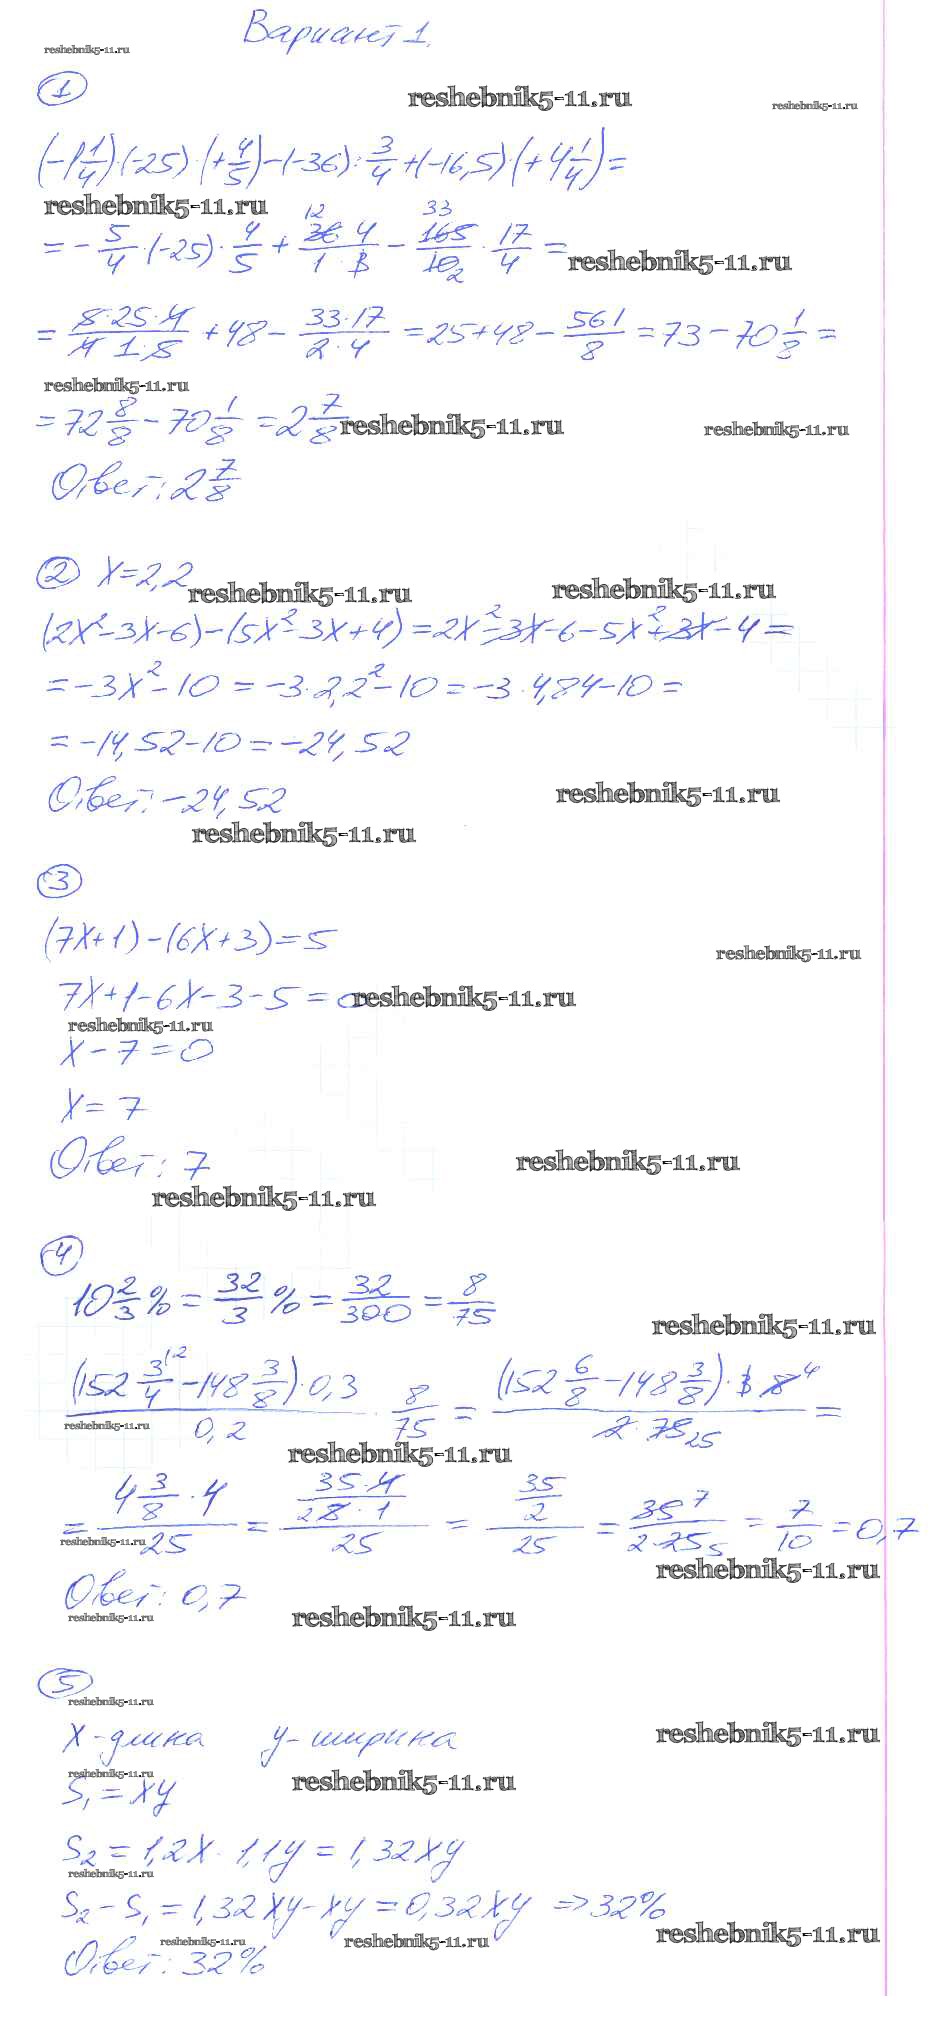 Вариант 1.
reshebnik5-11.ru
1
reshebnik5-11.ru
reshebnik5-11.ru
(-1 1/4)·(-25)·(+4/5)-(-36):3/4+(-16,5)·(+4 1/4)=
reshebnik5-11.ru
=-5/4·(-25)·4/5+(36 12·4)/(1·3)-(165 33)/(10 2)·17/4=
reshebnik5-11.ru
=(5·25·4)/(4·1·5)+48-(33·17)/(2·4)=25+48-561/8=73-70 1/8=
reshebnik5-11.ru
=72 8/8-70 1/8=2 7/8
reshebnik5-11.ru
reshebnik5-11.ru
Ответ: 2 7/8
2 x=2,2
reshebnik5-11.ru
reshebnik5-11.ru
(2x²-3x-6)-(5x²-3x+4)=2x²-3x-6-5x²+3x-4=
=-3x²-10=-3·2,2²-10=-3·4,84-10=
=-14,52-10=-24,52
Ответ: -24,52
reshebnik5-11.ru
reshebnik5-11.ru
3
(7x+1)-(6x+3)=5
reshebnik5-11.ru
7x+1-6x-3-5=0
reshebnik5-11.ru
reshebnik5-11.ru
x-7=0
x=7
Ответ: 7
reshebnik5-11.ru
reshebnik5-11.ru
4
10 2/3%=32/3%=32/300=8/75
reshebnik5-11.ru
((152 3/4 ˡ²-148 3/8)·0,3)/0,2·8/75=((152 6/8-148 3/8)·3·8 4)/(2·75 25)=
reshebnik5-11.ru
reshebnik5-11.ru
=(4 3/8·4)/25=((35·4)/(2 8·1))/25=(35/2)/25=(35 7)/(2·25 5)=7/10=0,7
reshebnik5-11.ru
reshebnik5-11.ru
Ответ: 0,7
reshebnik5-11.ru
reshebnik5-11.ru
5
reshebnik5-11.ru
x-длина y-ширина
reshebnik5-11.ru
reshebnik5-11.ru
reshebnik5-11.ru
S₁=xy
S₂=1,2x·1,1y=1,32xy
reshebnik5-11.ru
S₂-S₁=1,32xy-xy=0,32xy =>32%
reshebnik5-11.ru
reshebnik5-11.ru
reshebnik5-11.ru
Ответ: 32%